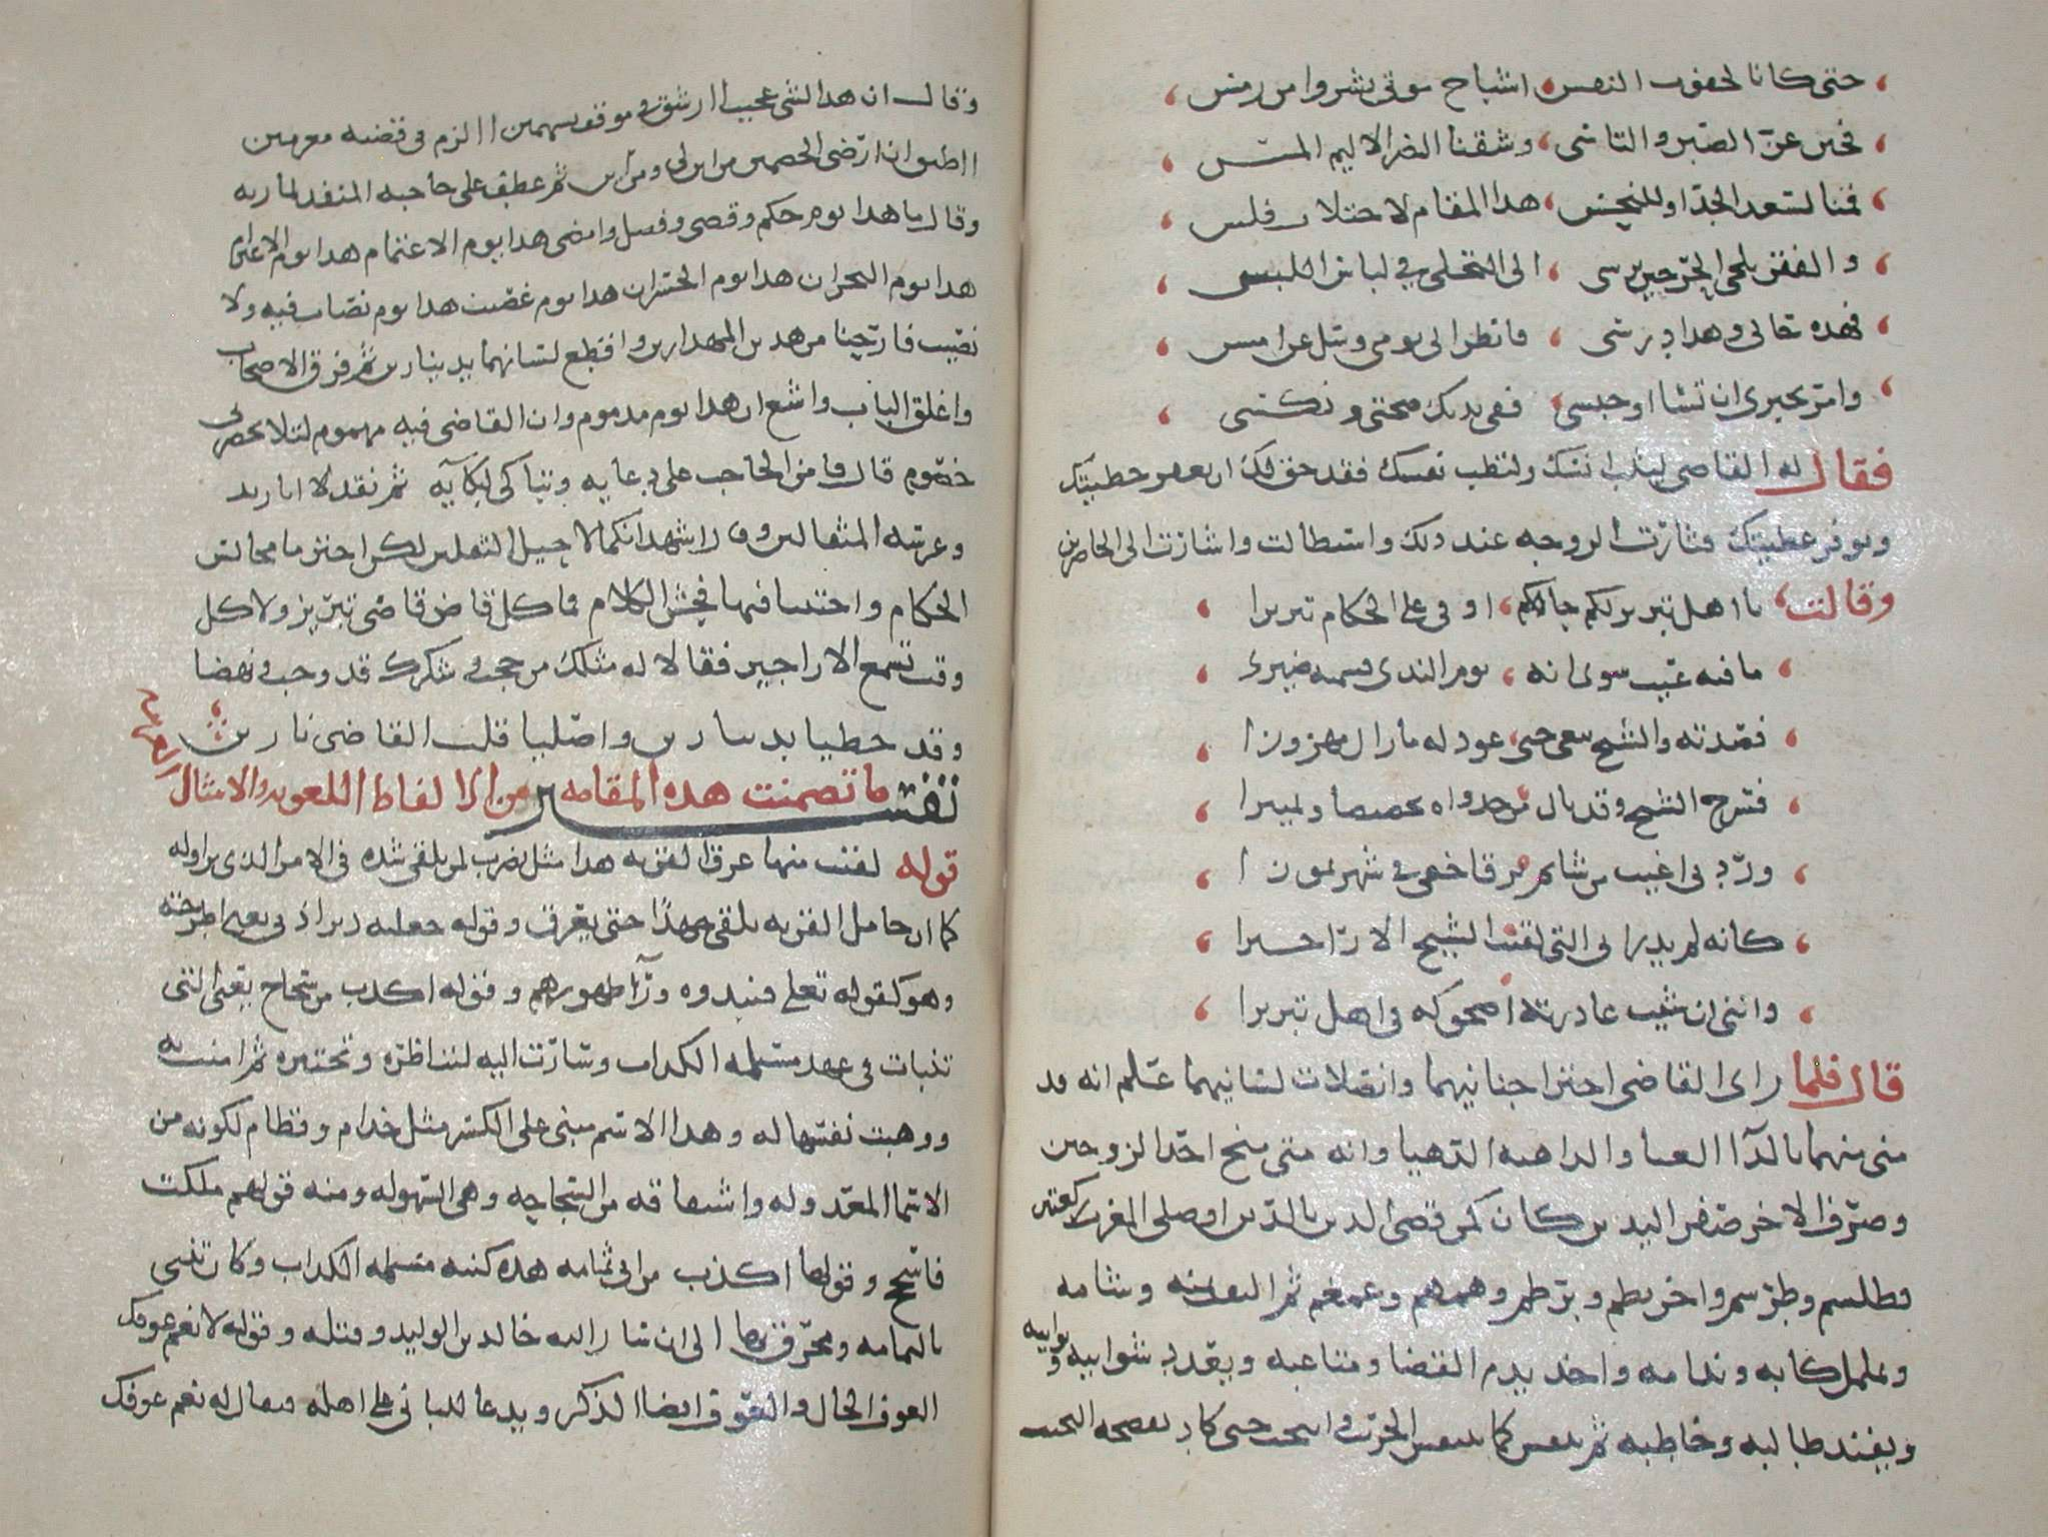 حتى كانا لخفوت النفس اشباح موتى نشروا من رمس
فحين عز الصبر والتاسي وشفنا الضر الاليم المس
قمنا لسعد الجد او للنحس هذا المقام لاجتلاب فلس
والفقر يلجي الحر حين يرسي الى التجلي في لباس اللبس
فهذه حالي وهذا درسي فانظر الى يومي وسل عن امسي
وامر بجبري ان تشا او حبسي ففي يديك صحتي ونكسي
فقال له القاضي ليثب انسك ولتطب نفسك فقد حق لك ان تغفر خطيتك
وتوفر عطيتك فثارت الزوجه عند ذلك واستطالت واشارت الى الحاضرين
وقالت يا اهل تبريز لكم حاكم اوفى على الحكام تبريزا
ما فيه عيب سوى انه يوم الندى قسمه ضيزى
قصدته والشيخ نبغي جنى عود له ما زال مهزوزا
فسرح الشيخ وقد نال من جدواه تخصيصا وتمييزا
وردني اخيب من شايم برقا خفى في شهر تموزا
كانه لم يدر اني التي لقنت الشيخ الاراجيزا
وانني ان شيت غادرته اضحوكه في اهل تبريزا
قال فلما راى القاضي اجترا جنانيهما وانصلات لسانيهما علم انه قد
مني منهما بالدا العيا والداهيه الدهيا وانه متى منح احد الزوجين
وصرف الاخر صفر اليدين كان كمن قضى الدين بالدين او صلى المغرب ركعتين
فطلسم وطرسم واخرنطم وبرطم وهمهم وغمغم ثم التفت يمنه وشامه
وتململ كابه وندامه واخذ يذم القضا ومتاعبه ويعدد شوايبه ونوايبه
ويفند طالبه وخاطبه ثم تنفس كما يتنفس الحريب وانتحب حتى كاد يفضحه النحيب
وقال ان هذا لشي عجيب اارشق في موقف بسهمين االزم في قضيه بمغرمين
ااطيق ان ارضي الخصمين من اين لي ومن اين ثم عطف على حاجبه المنفذ لماربه
وقال ما هذا يوم حكم وقضى وفصل وامضى هذا يوم الاغتمام هذا يوم الاغترام
هذا يوم البحران هذا يوم الخسران هذا يوم عصيب هذا يوم نصاب فيه ولا
نصيب فارحنا من هذين المهذارين واقطع لسانهما بدينارين ثم فرق الاصحاب
واغلق الباب واشع ان هذا يوم مذموم وان القاضي فيه مهموم لئلا يحضرني
خصوم قال فامن الحاجب على دعايه وتباكى لبكايه ثم نقد لابا زيد
وعرسه المثقالين وقال اشهد انكما لاحيل الثقلين لكن احترما مجالس
الحكام واجتنبا فيها فحش الكلام فما كل قاض قاضي تبريز ولا كل
وقت تسمع الاراجيز فقالا له مثلك من حجب وشكرك قد وجب ونهضا
وقد حظيا بدينارين واصليا قلب القاضي نارين
تفسير ما تضمنت هذه المقامه من الالفاظ اللغويه والامثال
قوله لقيت منها عرق القربه هذا مثل يضرب لمن يلقى شده في الامر الذي يزاوله
كما ان حامل القربه يلقى جهدا حتى يعرق وقوله جعلته دبر اذني يعني اطرحته
وهو كقوله تعلى فنبذوه ورآ ظهورهم وقوله اكذب من سجاح يعني التي
تنبات في عهد مسيلمه الكذاب وسارت اليه لتناظره وتختبره ثم امنت به
ووهبت نفسها له وهذا الاسم مبني على الكسر مثل حذام وقطام لكونه من
الاسما المعدوله واشتقاقه من السجاحه وهي السهوله ومنه قولهم ملكت
فاسجح وقولها اكذب من ابي ثمامه هذه كنيه مسيلمه الكذاب وكان تنبى
باليمامه ومخرق بها الى ان سار اليه خالد بن الوليد وقتله وقوله لا نعم عوفك
العوف الحال والعوف ايضا الذكر ويدعا للباني على اهله فيقال له نعم عوفك